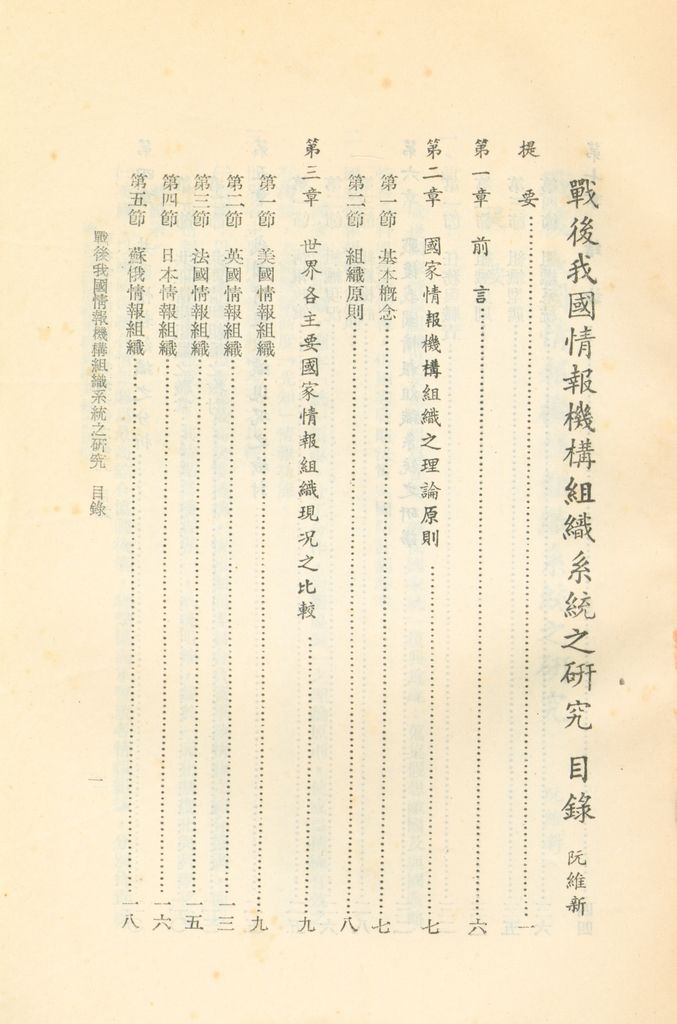 戰後我國情報機構組織系統之研究 目錄 阮維新
提 要……一
第一章 前 言……六
第二章 國家情報機構組織之理論原則……七
第一節 基本概念……七
第二節 組織原則……八
第三章 世界各主要國家情報組織現況之比較……九
第一節 美國情報組織……九
第二節 英國情報組織……一三
第三節 法國情報組織……一五
第四節 日本情報組織……一六
第五節 蘇俄情報組織……一八
戰後我國情報機構組織系統之研究 目錄
一